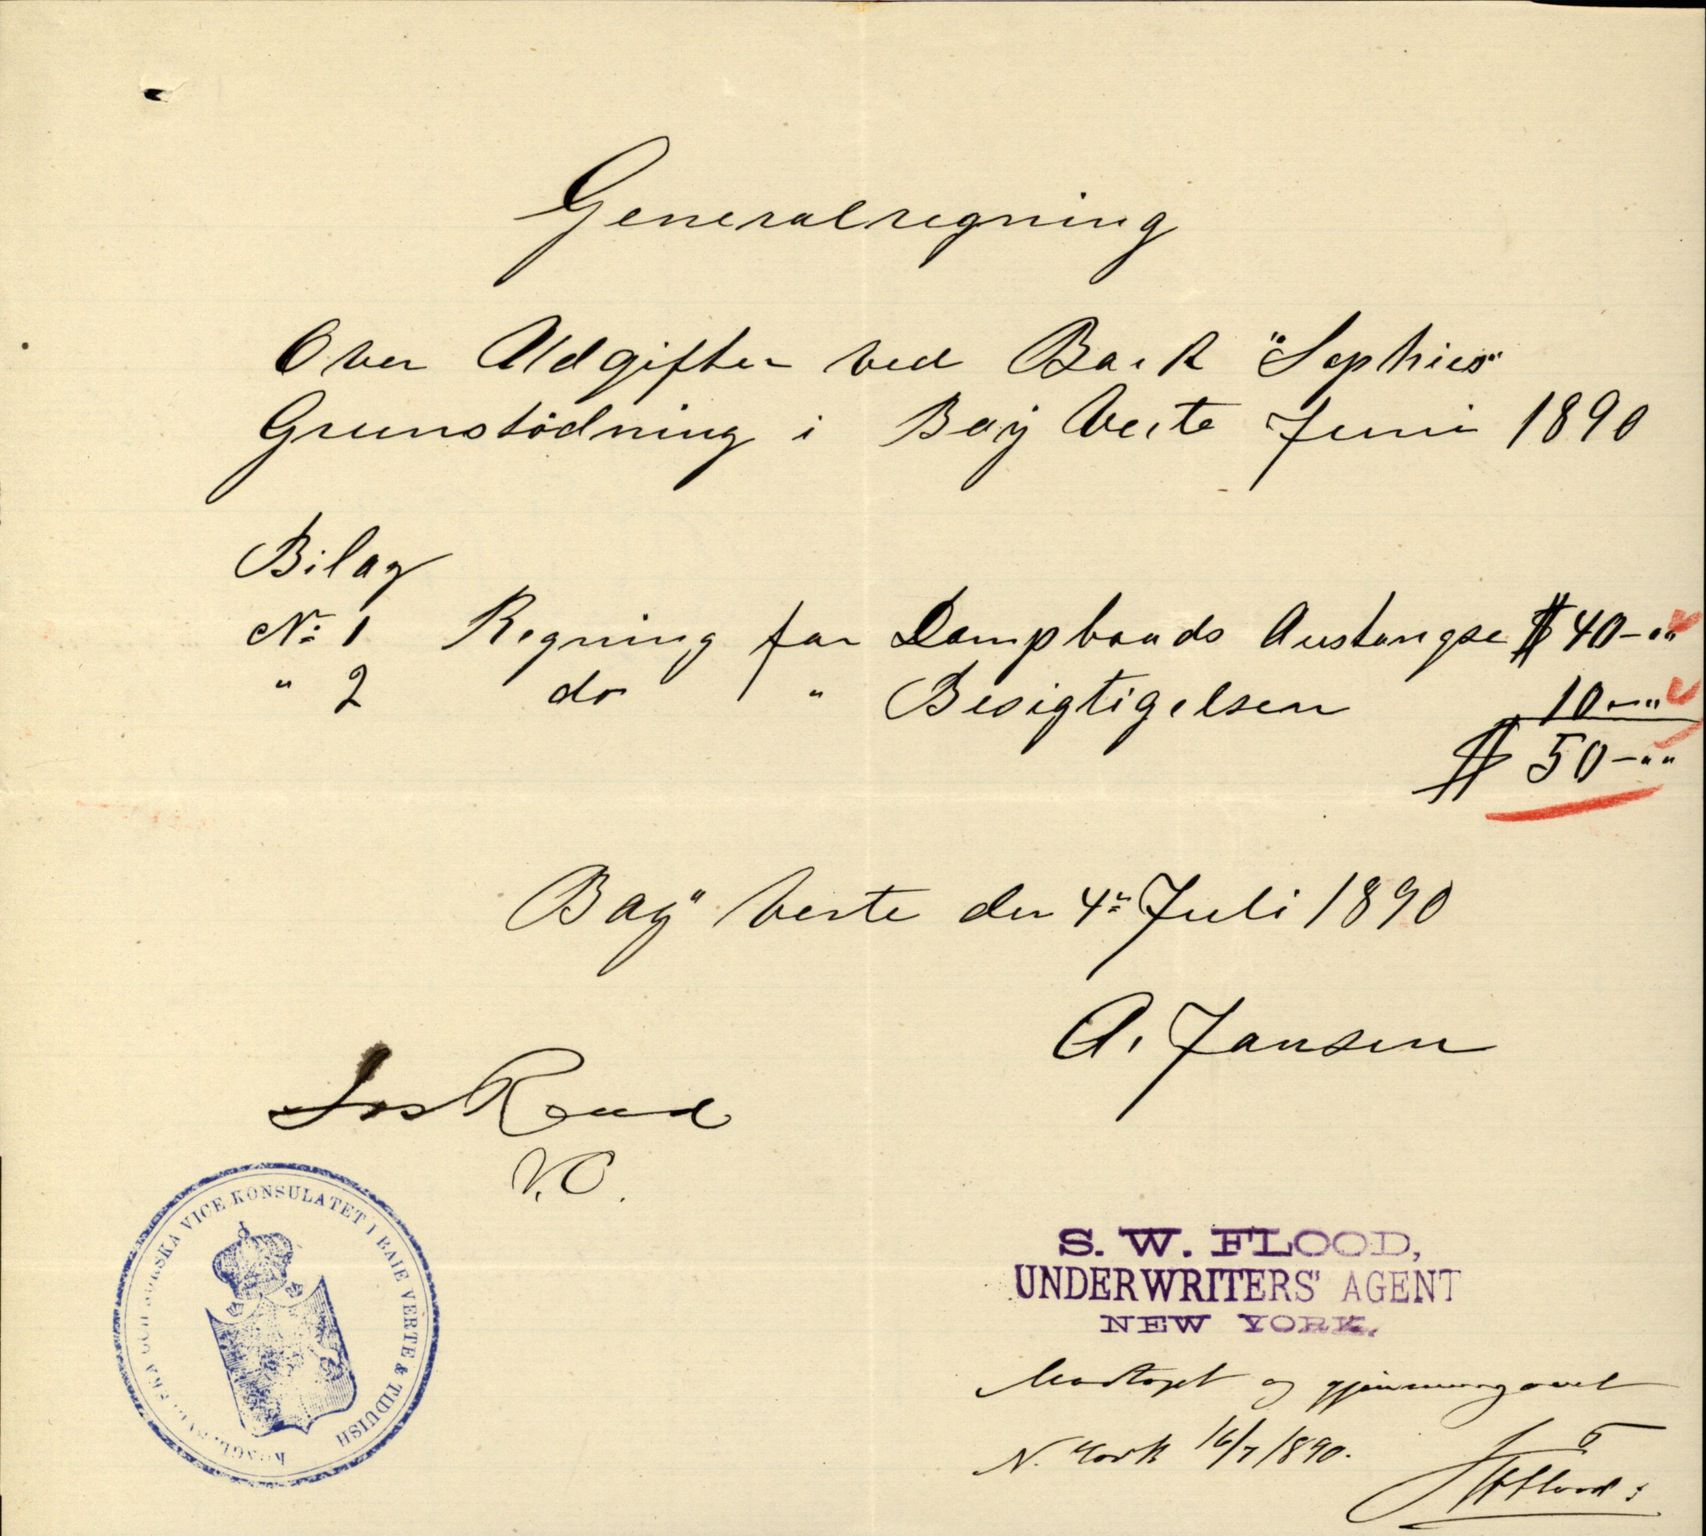 Generalregning
Over Udgifter ved Bark "Sophies"
Grunstödning i Bay Verte Juni 1890
Bilag
No: 1 Regning for Dampbaads Anstangse $ 40-""
" 2 do " Besigtigelsen 10-""
$ 50-""
Bay Verte den 4de Juli 1890
A. Jansen
Jos Read
V.C.
KONGL. SVENSKA OCH NORSKA VICE KONSULATET I BAIE VERTE & TIDUISH
S. W. FLOOD,
UNDERWRITERS' AGENT
NEW YORK.
Modtaget og gjennemgaaet
N. York 16/7 1890.
Flood